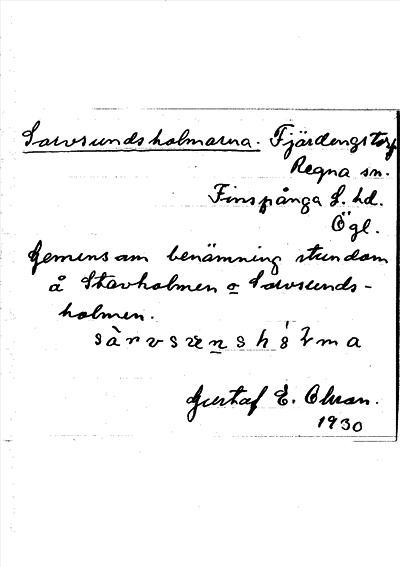 Sarvsundsholmarna. Fjärdengstorp
Regna sn.
Finspånga l. hd.
Ögl.
Gemensam benämning stundom
å Stavholmen o Sarvsunds-
holmen.
Gustaf E. Olsson.
1930